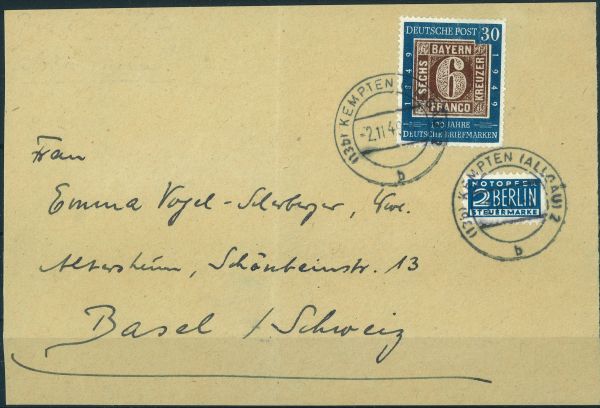 DEUTSCHE POST 30
1849
BAYERN
SECHS
6
KREUZER
FRANCO
1949
100 JAHRE
DEUTSCHE BRIEFMARKEN
(13b) KEMPTEN
-2.11.49
b
(13b) KEMPTEN (ALLGÄU) 2
NOTOPFER
2 BERLIN
STEUERMARKE
b
Frau
Emma Vogel-, Wwe.
Altersheim, Schönbeinstr. 13
Basel / Schweiz